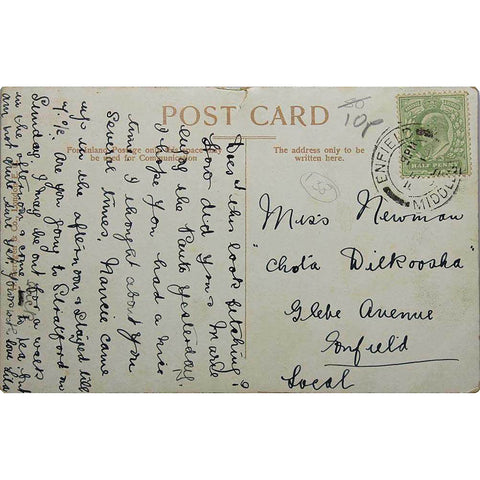 POST CARD
For Inland Postage only this space may
be used for Communication
The address only to be
written here.
10p
153
HALF PENNY
ENFIELD
MIDDLE
Miss Newman
"Chota Dilkoosha"
Glebe Avenue
Enfield
Local
Does this look fetching?
How did you & Marde
enjoy the Panto yesterday.
I hope you had a nice
time. I thought about you
several times. Nannie came
up in the afternoon & stayed till
9/10. Are you going to Stratford on
Sunday, I may be out for a walk
in the afternoon & come in to tea, but
am not quite sure yet. Yours with love